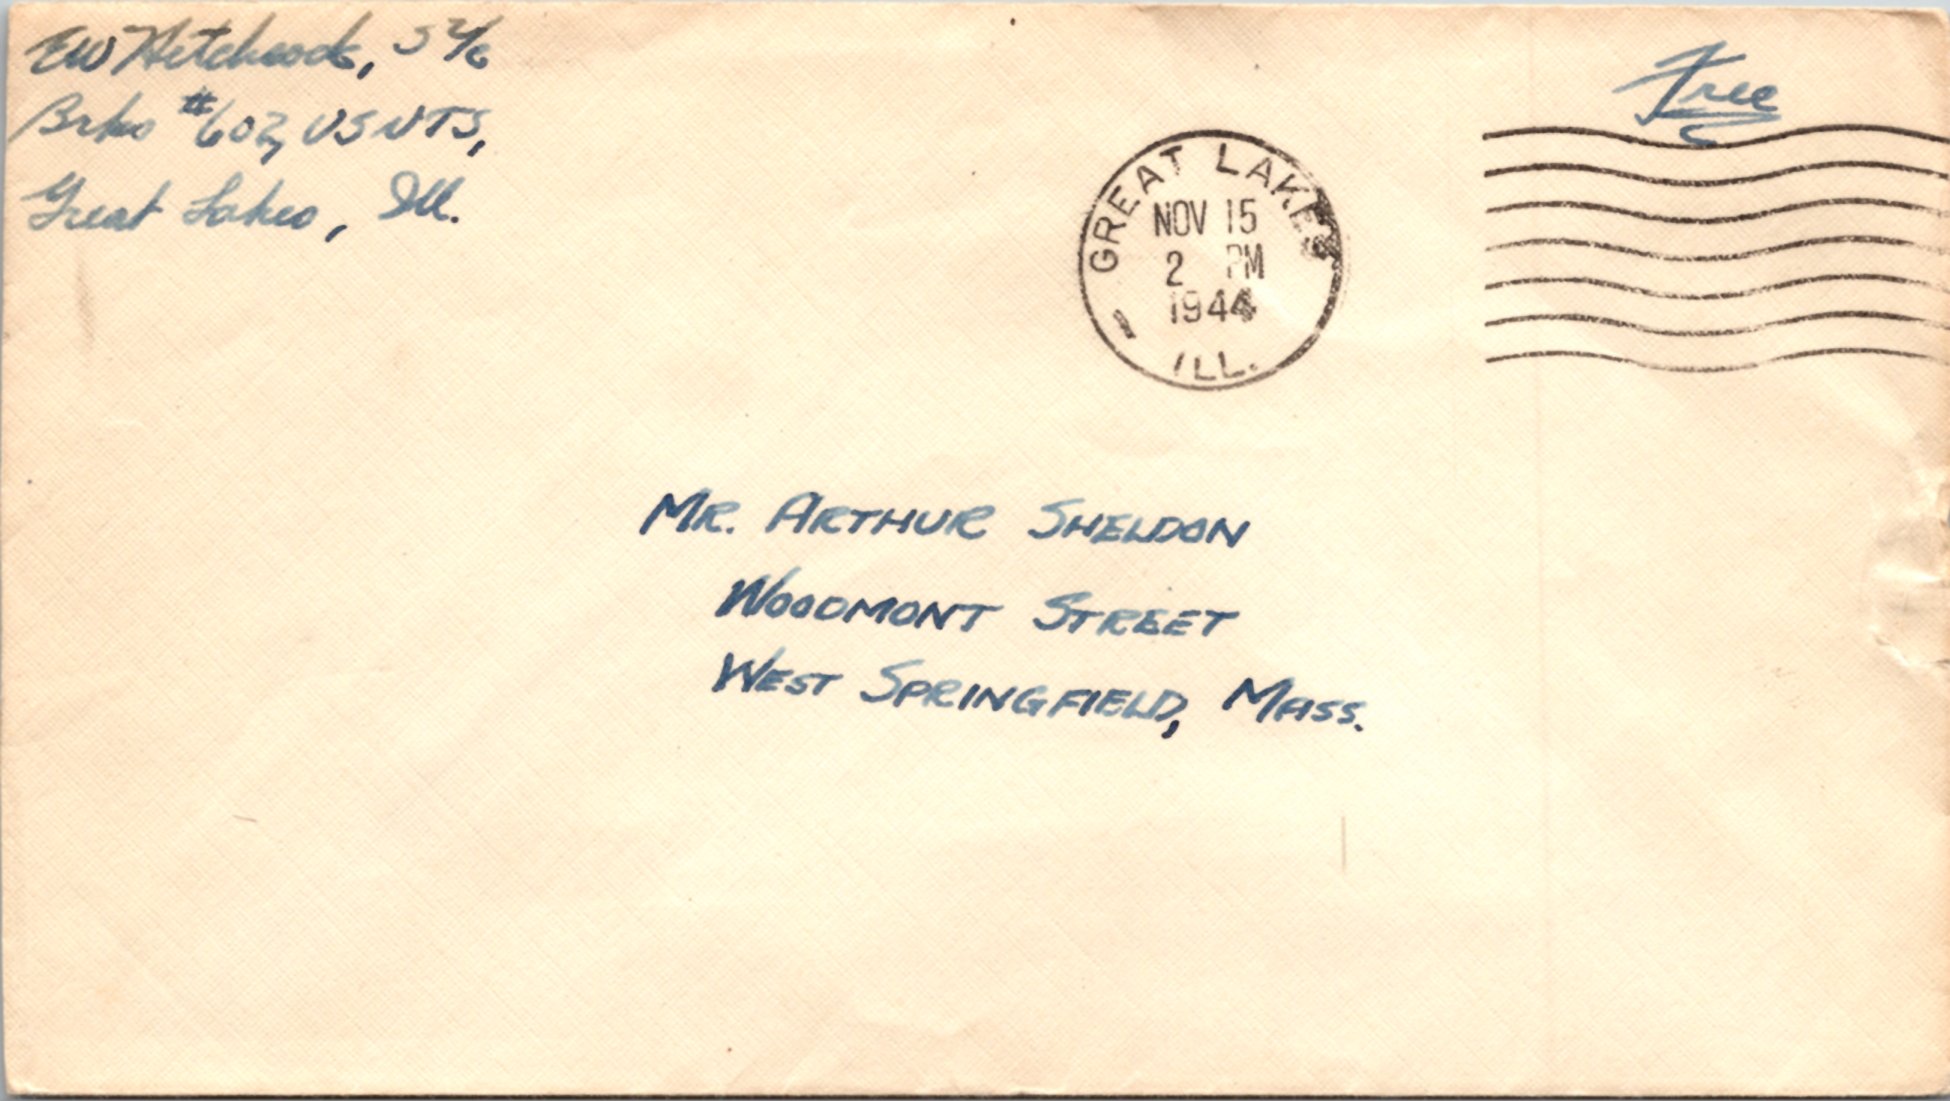 EW Hitchcock, S 2/c
Brks #602, USNTS,
Great Lakes, Ill.
Free
GREAT LAKES
NOV 15
2 PM
1944
ILL.
MR. ARTHUR SHELDON
WOODMONT STREET
WEST SPRINGFIELD, MASS.